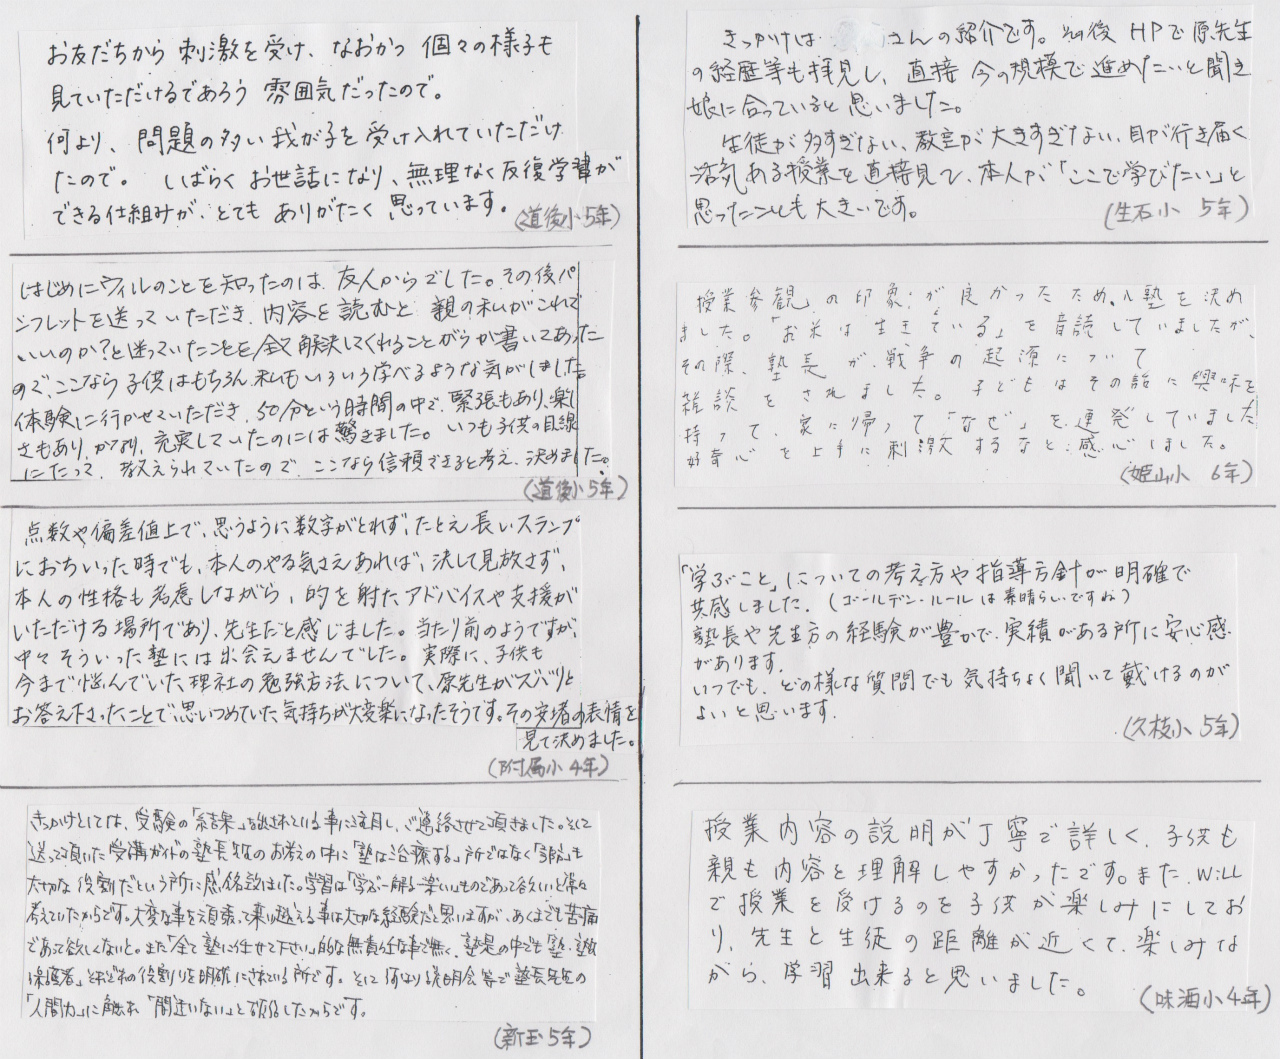 お友だちから刺激を受け、なおかつ個々の様子も
見ていただけるであろう雰囲気だったので。
何より、問題の多い我が子を受け入れていただけ
たので。しばらくお世話になり、無理なく反復学習が
できる仕組みが、とてもありがたく思っています。
(道後小5年)
はじめにウィルのことを知ったのは、友人からでした。その後パ
ンフレットを送っていただき、内容を読むと、親の私がこれで
いいのか?と迷っていたことを全て解決してくれることがらが書いてあった
ので、ここなら子供はもちろん、私もいろいろ学べるような気がしました。
体験に行かせていただき、50分という時間の中で、緊張もあり、楽し
さもあり、かなり、充実していたのには驚きました。いつも子供の目線
にたって、教えられていたので、ここなら信頼できると考え、決めました。
(道後小5年)
点数や偏差値上で、思うように数字がとれず、たとえ長いスランプ
におちいった時でも、本人のやる気さえあれば、決して見放さず、
本人の性格も考慮しながら、的を射たアドバイスや支援が
いただける場所であり、先生だと感じました。当たり前のようですが、
中々そういった塾には出会えませんでした。実際に、子供も
今まで悩んでいた理社の勉強方法について、原先生がズバリと
お答え下さったことで、思いつめていた気持ちが大変楽になったそうです。その安堵の表情を
見て決めました。
(附属小4年)
きっかけとしては、受験の「結果」を出されている事に注目し、ご連絡させて頂きました。そして
送って頂いた受講ガイドの塾長先生のお考えの中に「塾は治療する」所ではなく「予防」も
大切な役割だという所に感銘致しました。学習は「学ぶ→解る→楽しい」ものであって欲しいと常々
考えていたからです。大変な事を頑張って乗り越える事は大切な経験だと思いますが、あくまでも苦痛
であって欲しくないと。また「全て塾に任せて下さい」的な無責任な事で無く、塾是の中でも「塾・塾生・
保護者」それぞれの役割りを明確にされている所です。そして何より説明会等で塾長先生の
「人間力」に触れ「間違いない」と確信したからです。
(新玉5年)
きっかけは さんの紹介です。その後HPで原先生
の経歴等も拝見し、直接 今の規模で進めたいと聞き
娘に合っていると思いました。
生徒が多すぎない、教室が大きすぎない、目が行き届く
活気ある授業を直接見て、本人が「ここで学びたい」と
思ったことも大きいです。
(生石小 5年)
授業参観」の印象が良かったため、入塾を決め
ました。「お米は生きている」を音読していましたが、
その際、塾長が、戦争の起源について
雑談をされました。子どもはその話に興味を
持って、家に帰って「なぜ」を連発していました
好奇心を上手に刺激するなと感心しました。
(姫山小 6年)
「学ぶこと」についての考え方や指導方針が明確で
共感しました。(ゴールデン・ルールは素晴らしいですね)
塾長や先生方の経験が豊かで、実績がある所に安心感
があります。
いつでも、どの様な質問でも気持ちよく聞いて戴けるのが
よいと思います。
(久枝小 5年)
授業内容の説明が丁寧で詳しく、子供も
親も内容を理解しやすかったです。また、WiLL
で授業を受けるのを子供が楽しみにしてお
り、先生と生徒の距離が近くて、楽しみな
がら、学習出来ると思いました。
(味酒小4年)